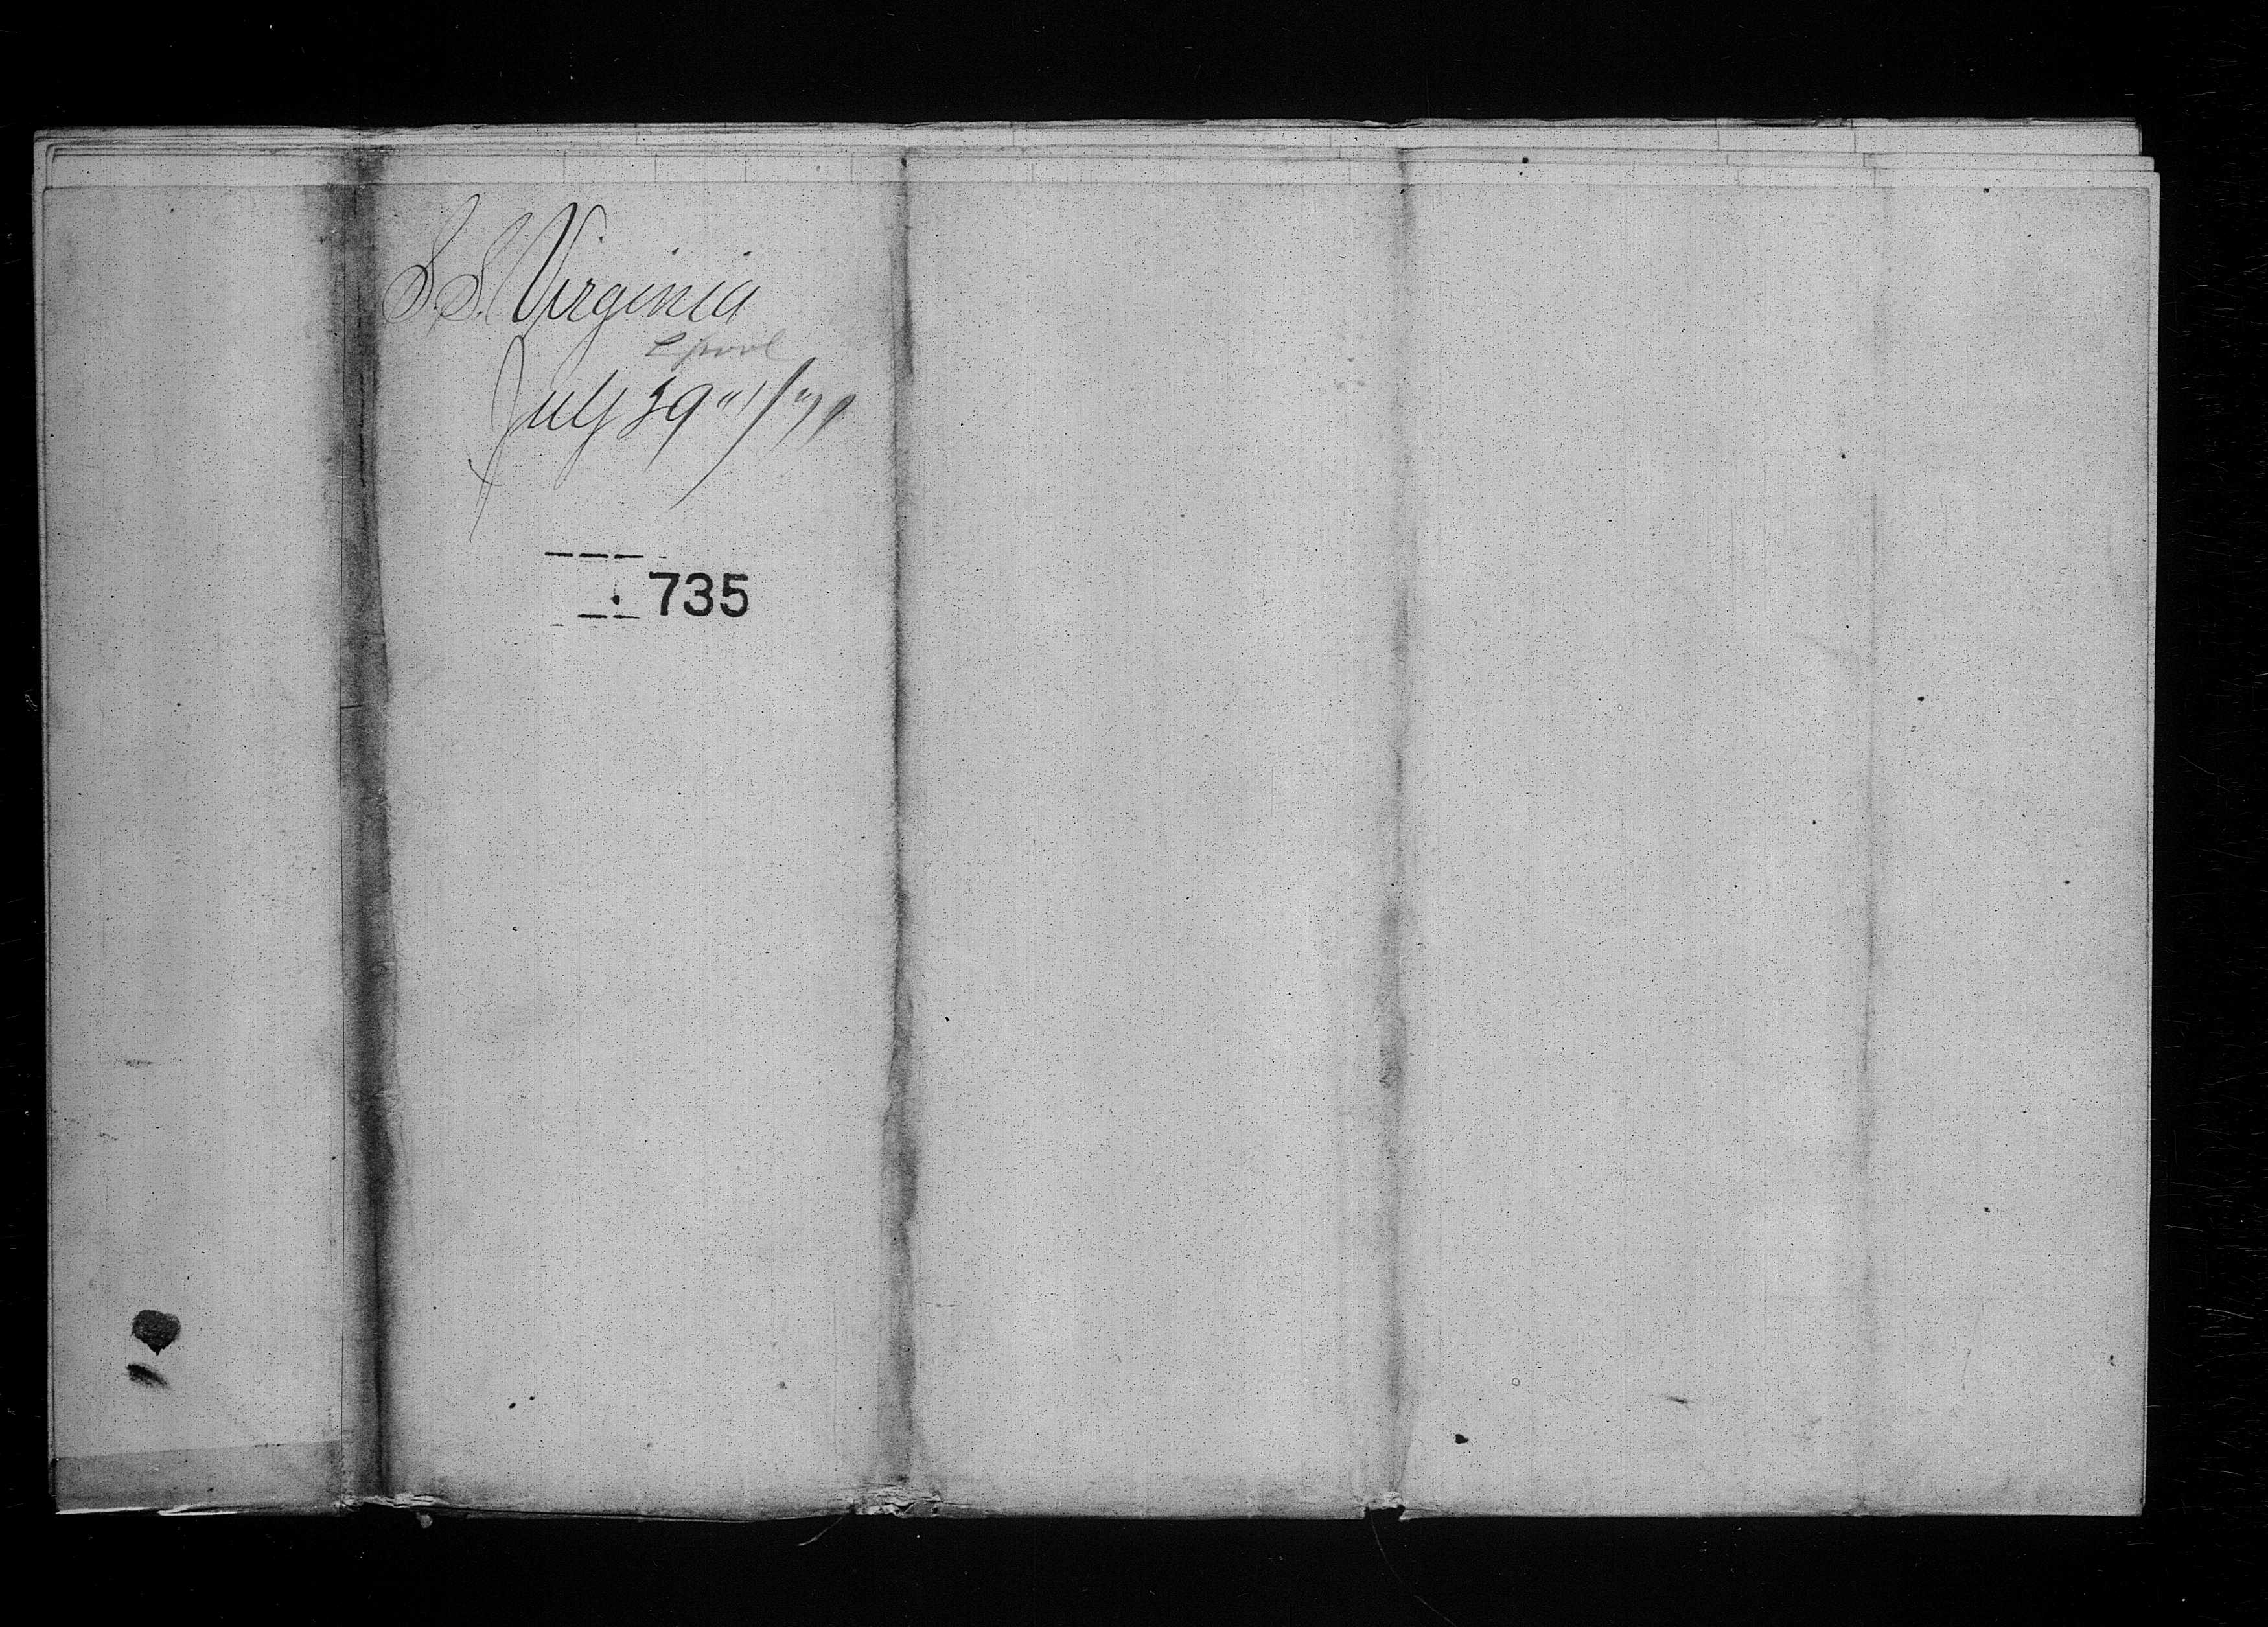 S.S. Virginia
L'pool
July 29"
735